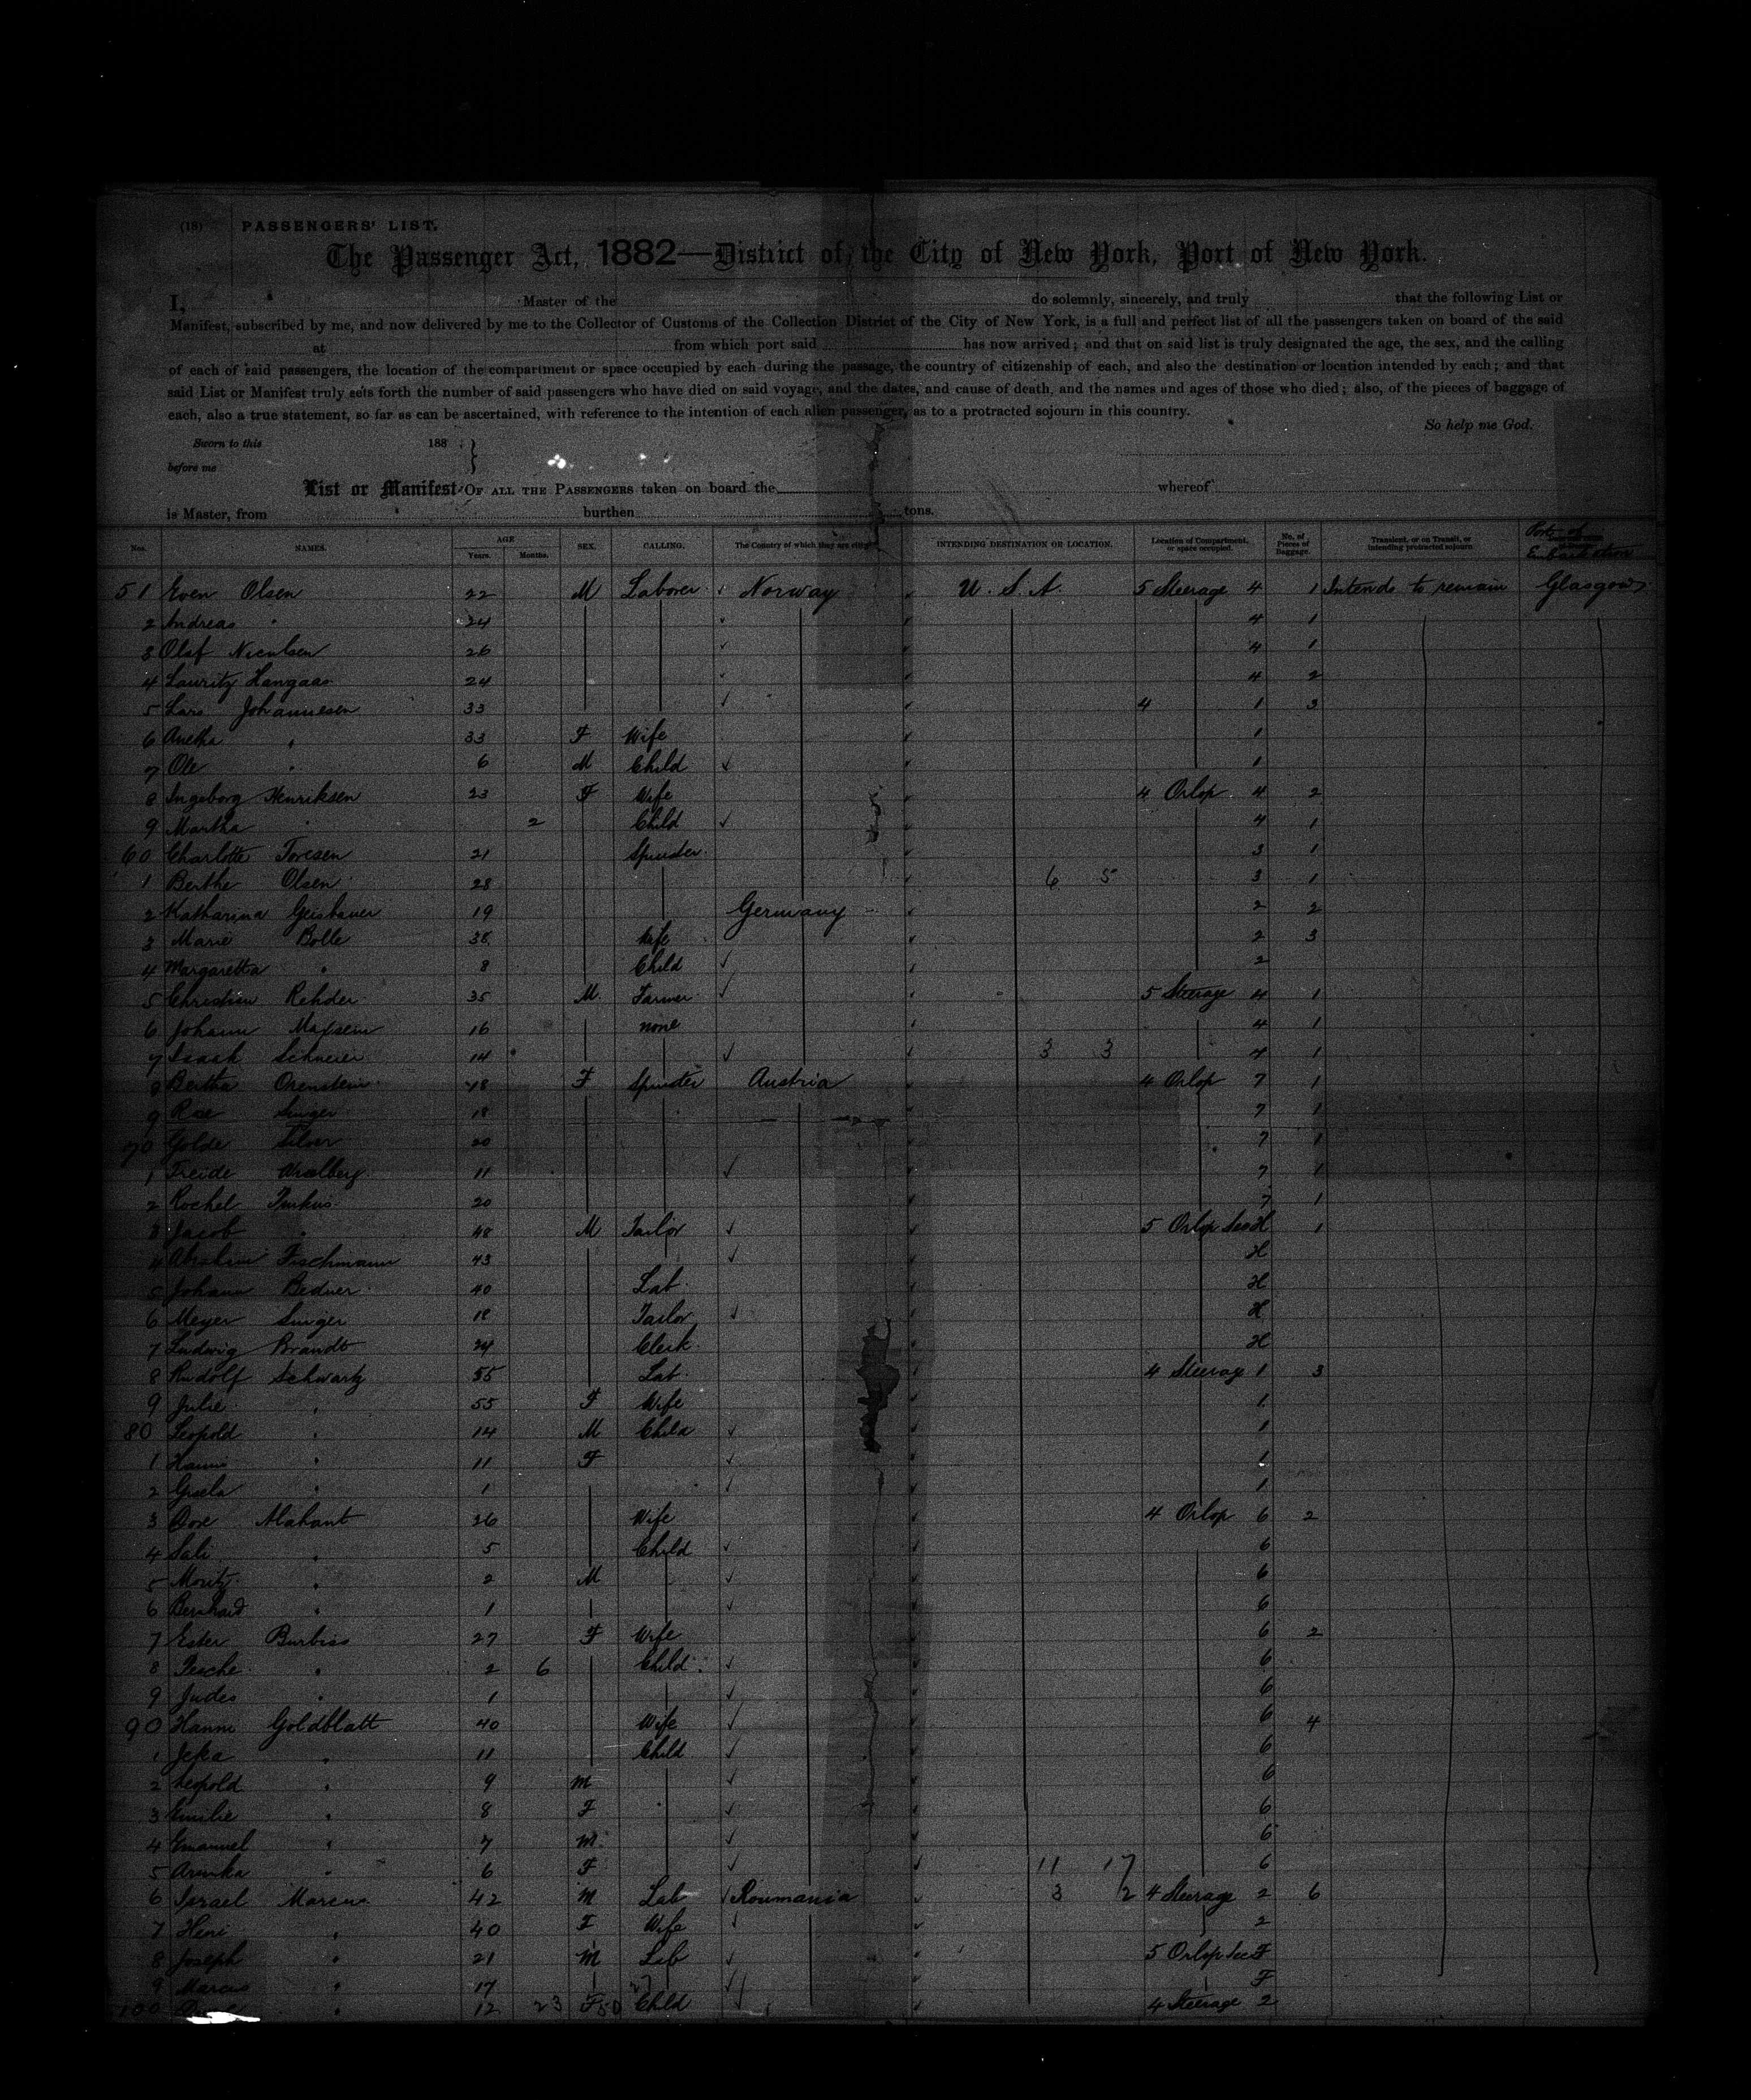 (18) PASSENGERS' LIST.
The Passenger Act, 1882—District of the City of New York, Port of New York.
I, Master of the do solemnly, sincerely, and truly that the following List or
Manifest, subscribed by me, and now delivered by me to the Collector of Customs of the Collection District of the City of New York, is a full and perfect list of all the passengers taken on board of the said
at from which port said has now arrived; and that on said list is truly designated the age, the sex, and the calling
of each of said passengers, the location of the compartment or space occupied by each during the passage, the country of citizenship of each, and also the destination or location intended by each; and that
said List or Manifest truly sets forth the number of said passengers who have died on said voyage, and the dates, and cause of death, and the names and ages of those who died; also, of the pieces of baggage of
each, also a true statement, so far as can be ascertained, with reference to the intention of each alien passenger, as to a protracted sojourn in this country.
So help me God.
Sworn to this 188 }
before me
List or Manifest OF ALL THE PASSENGERS taken on board the whereof
is Master, from burthen tons.
Nos. NAMES. AGE Years. Months. SEX. CALLING. The Country of which they are citizens INTENDING DESTINATION OR LOCATION. Location of Compartment, or space occupied. No. of Pieces of Baggage. Transient, or on Transit, or intending protracted sojourn. Port of Embarkation
51 Even Olsen 22 M Laborer Norway U. S. A. 5 Steerage 4 1 Intends to remain Glasgow
2 Andreas " 24 4 1
3 Olaf 26 4 1
4 Lauritz 24 4 2
5 Lars Johannesen 33 4 1 3
6 Anetha " 33 F Wife 1
7 Ole " 6 M Child 1
8 Ingeborg Henriksen 23 F Wife 4 Orlop 4 2
9 Martha " 2 Child 4 1
60 Charlotte Toresen 21 Spinster 3 1
1 Berthe Olsen 28 6 5 3 1
2 Katharina 19 Germany 2 2
3 Marie Bolle 38 Wife 2 3
4 Margaretta " 8 Child 2
5 Christian Rehder 35 M Farmer 5 Steerage 4 1
6 Johann 16 none 4 1
7 Isaak Schneier 14 3 3 4 1
8 Bertha Orenstein 18 F Spinster Austria 4 Orlop 7 1
9 Rose Singer 18 7 1
70 Golde Silver 20 7 1
1 Freide 11 7 1
2 Rochel 20 7 1
3 Jacob " 48 M Tailor 5 Orlop Sec H 1
4 Abraham Fischmann 43 H
5 Johann Bedner 40 Lab. H
6 Meyer Singer 18 Tailor H
7 Ludwig Brandt 24 Clerk H
8 Rudolf Schwartz 55 Lab. 4 Steerage 1 3
9 Julie " 55 F Wife 1
80 Leopold " 14 M Child 1
1 Hanni " 11 F 1
2 Gisela " 1 1
3 Dore Mahant 26 Wife 4 Orlop 6 2
4 Sali " 5 Child 6
5 Moritz " 2 M 6
6 Bernhard " 1 6
7 Ester Burbiss 27 F Wife 6 2
8 Pesche " 2 6 Child 6
9 Judes " 1 6
90 Hanni Goldblatt 40 Wife 6 4
1 " 11 Child 6
2 Leopold " 9 M 6
3 Emilie " 8 F 6
4 Emanuel " 7 M 6
5 " 6 F 11 17 6
6 Israel Marcus 42 M Lab Roumania 3 2 4 Steerage 2 6
7 Heni " 40 F Wife 2
8 Joseph " 21 M Lab 5 Orlop Sec F
9 Marcus " 17 F
100 " 12 23 F 50 Child 4 Steerage 2